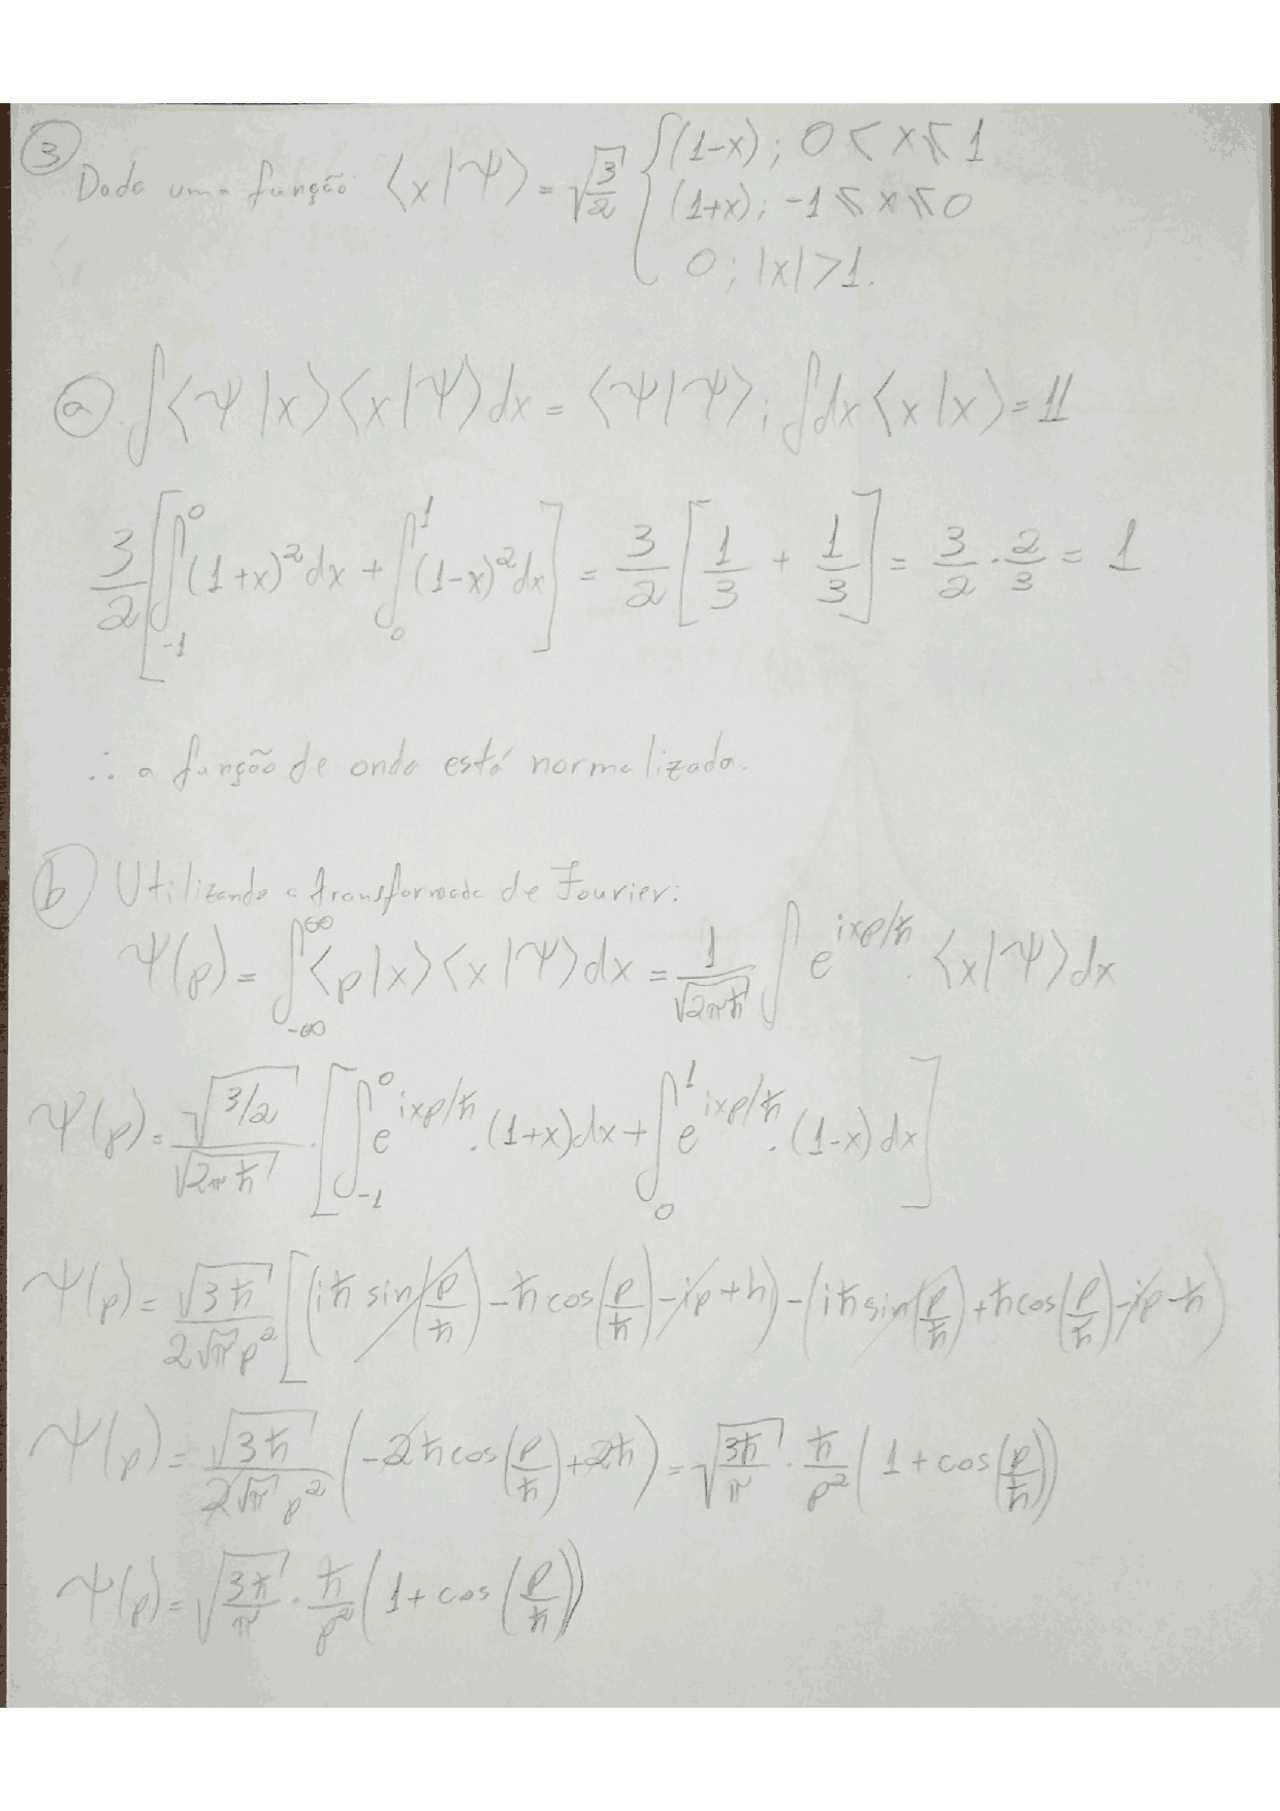 3
Dada uma função ⟨x|Ψ⟩ = √(3/2) { (1-x); 0 < x ⩽ 1
(1+x); -1 ⩽ x ⩽ 0
0; |x| > 1.
a) ∫⟨Ψ|x⟩⟨x|Ψ⟩dx = ⟨Ψ|Ψ⟩; ∫dx⟨x|x⟩ = 𝟙
3/2 [∫_{-1}^{0} (1+x)² dx + ∫_{0}^{1} (1-x)² dx] = 3/2 [1/3 + 1/3] = 3/2 · 2/3 = 1
∴ a função de onda está normalizada.
b) Utilizando a transformada de Fourier:
Ψ(p) = ∫_{-∞}^{∞} ⟨p|x⟩⟨x|Ψ⟩dx = 1/√(2πħ) ∫ e^{ixp/ħ} · ⟨x|Ψ⟩dx
Ψ(p) = √(3/2)/√(2πħ) · [∫_{-1}^{0} e^{ixp/ħ} · (1+x)dx + ∫_{0}^{1} e^{ixp/ħ} · (1-x)dx]
Ψ(p) = √(3ħ)/(2√π p²) [(iħ sin(p/ħ) - ħcos(p/ħ) - ip + h) - (iħ sin(p/ħ) + ħcos(p/ħ) - ip - ħ)
Ψ(p) = √(3ħ)/(2√π p²) (-2ħcos(p/ħ) + 2ħ) = √(3ħ/π) · ħ/p² (1 + cos(p/ħ))
Ψ(p) = √(3ħ/π) · ħ/p² (1 + cos(p/ħ))